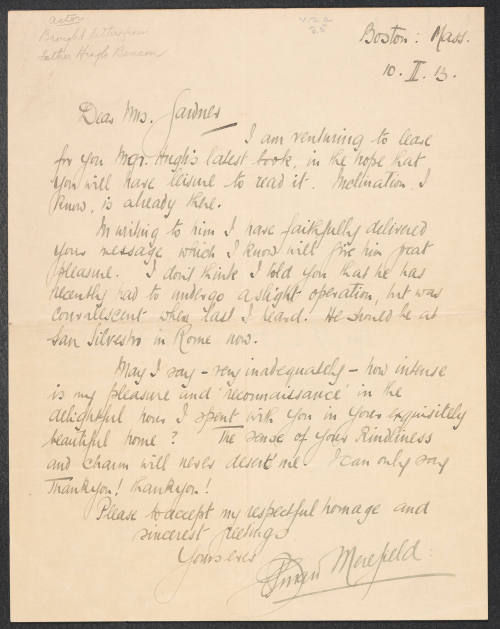 actor
Brought letter from
Father Hugh Benson
Boston: Mass.
10. II. 13.
Dear Mrs. Gardner
I am venturing to leave
for you Mgr. Hugh's latest book, in the hope that
you will have leisure to read it. Inclination, I
know, is already there.
In writing to him I have faithfully delivered
your message, which I know will give him great
pleasure. I don't think I told you that he has
recently had to undergo a slight operation, but was
convalescent when last I heard. He should be at
San Silvestro in Rome now.
May I say - very inadequately - how intense
is my pleasure and 'reconnaissance' in the
delightful hour I spent with you in your exquisitely
beautiful home? The sense of your kindliness
and charm will never desert me. I can only say
Thankyou! Thankyou!
Please to accept my respectful homage and
sincerest greetings
Yours ever
Merefield: